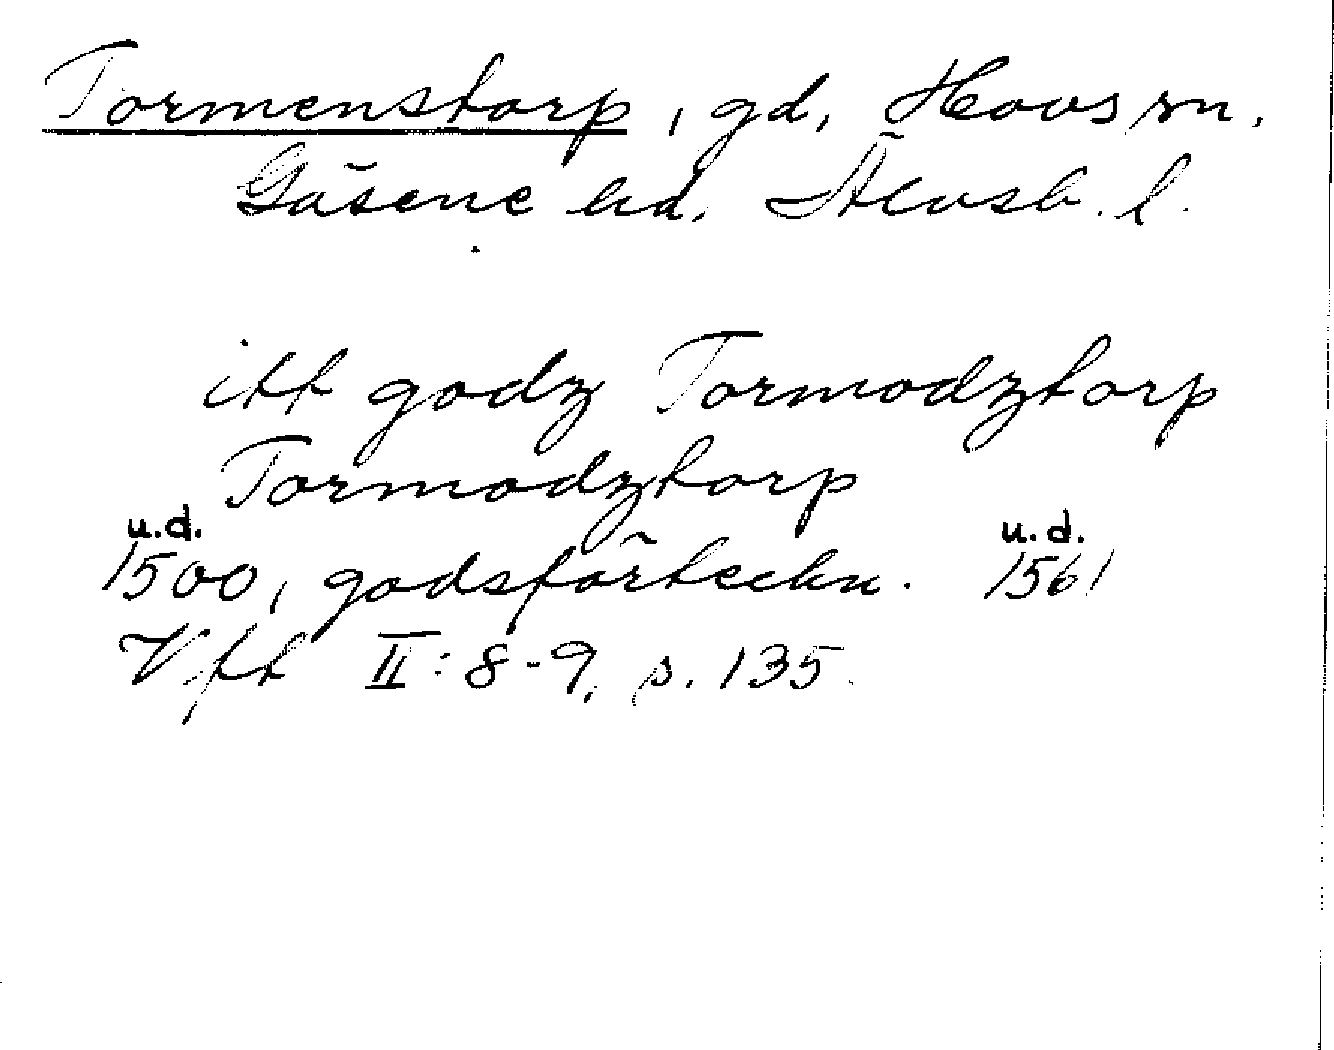 Tormenstorp, gd, Hovs sn.
Gäsene hd, Älvsb. l.
itt godz Tormodztorp
Tormodztorp
u.d. u.d.
1500, godsförteckn. 1561
Vft II: 8-9, s. 135.